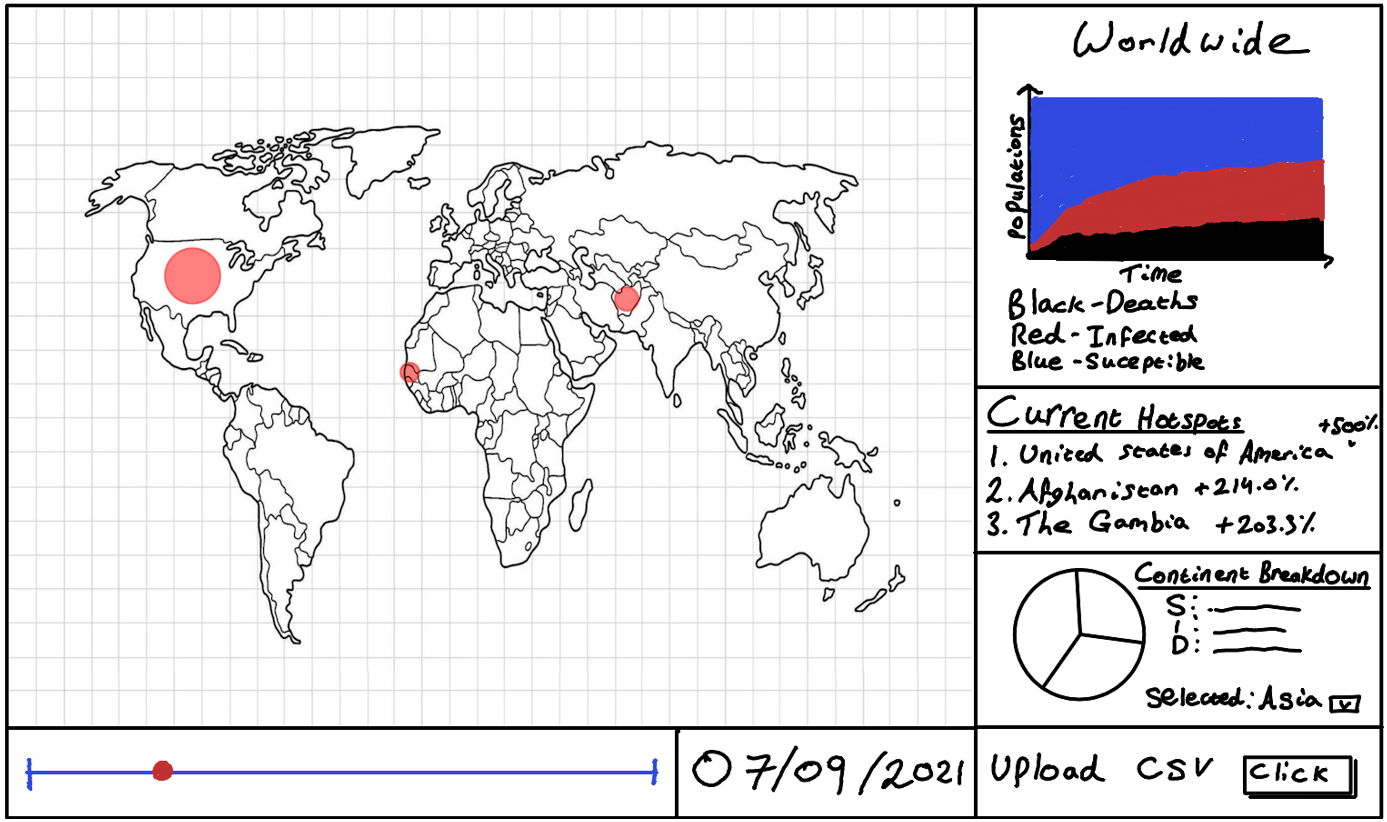 Worldwide
Populations
Time
Black - Deaths
Red - Infected
Blue - Suceptible
Current Hotspots
+500%
1. United states of America
2. Afghanistan +214.0%
3. The Gambia +203.3%
Continent Breakdown
S:
I:
D:
Selected: Asia v
07/09/2021
Upload CSV Click